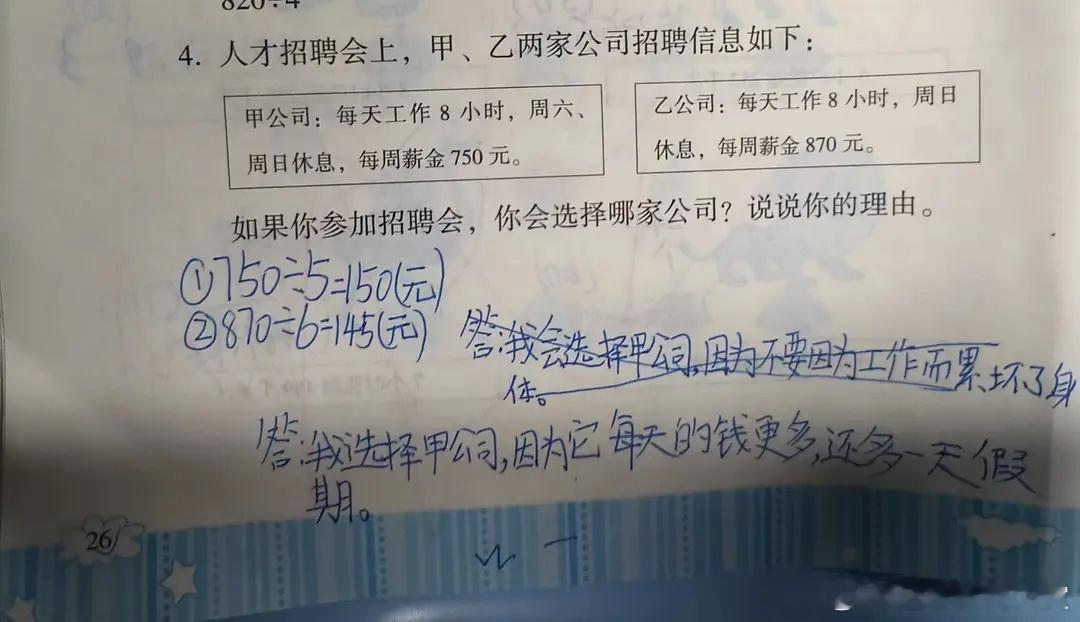 820÷4
4. 人才招聘会上，甲、乙两家公司招聘信息如下：
甲公司：每天工作 8 小时，周六、
周日休息，每周薪金 750 元。
乙公司：每天工作 8 小时，周日
休息，每周薪金 870 元。
如果你参加招聘会，你会选择哪家公司？说说你的理由。
①750÷5=150(元)
②870÷6=145(元)
答:我会选择甲公司,因为不要因为工作而累坏了身
体。
答:我选择甲公司,因为它每天的钱更多,还多一天假
期。
26